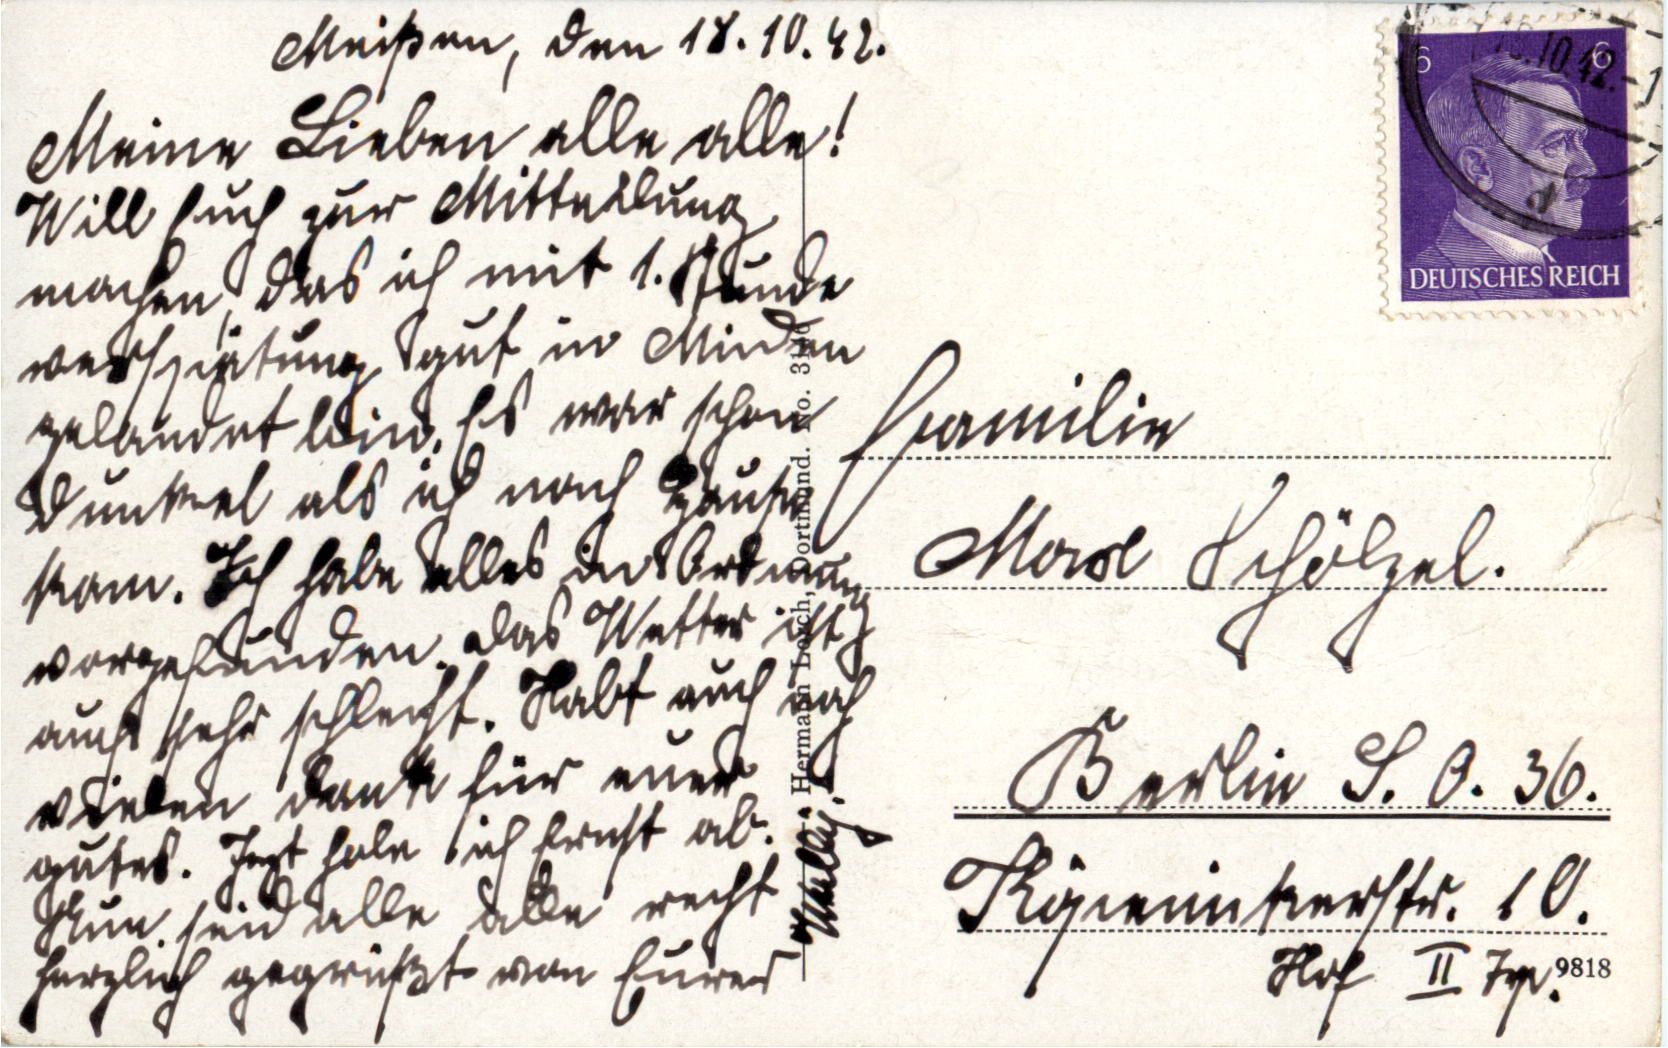 Meißen, den 18.10.42.
Meine Lieben alle alle!
Will Euch zur Mitteilung
machen, das ich mit 1. Stunde
verspätung gut in Minden
gelandet bin. Es war schon
dunkel als ich nach Hause
kam. Ich habe alles in Ordnung
vorgefunden. Das Wetter ist
auch sehr schlecht. Habt auch noch
vielen dank für euer
gutes. Jezt hole ich Ernst ab.
Nun seid alle alle recht
herzlich gegrüßt von Eurer
Willy.
Hermann Lorch, Dortmund. No. 3140
6 6
18.10.42.-1
DEUTSCHES REICH
Familie
Max Schölzel.
Berlin S.O. 36.
Köpenickerstr. 10.
Hof II Trp.
9818